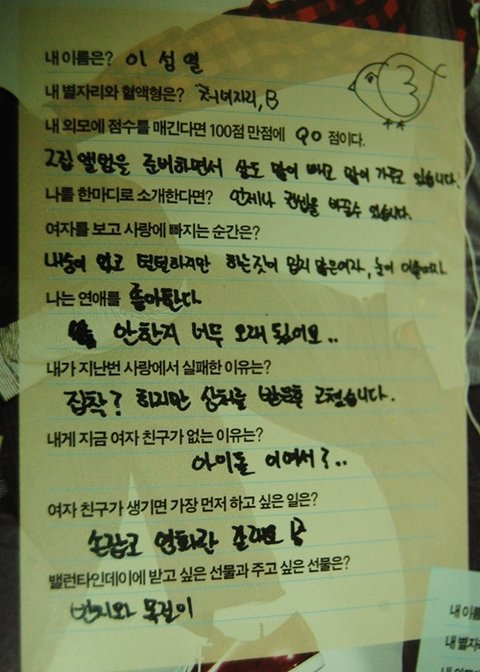 내 이름은? 이 성 열
내 별자리와 혈액형은? 처녀자리, B
내 외모에 점수를 매긴다면 100점 만점에 90 점이다.
2집 앨범을 준비하면서 살도 많이 빼고 많이 가꾸고 있습니다.
나를 한마디로 소개한다면? 언제나 관심을 바꿀수 있습니다.
여자를 보고 사랑에 빠지는 순간은?
내숭이 없고 털털하지만 하는짓이 밉지 않은여자, 눈이 이쁜여자
나는 연애를 좋아한다
안한지 너무 오래 됐어요..
내가 지난번 사랑에서 실패한 이유는?
집착? 하지만 상처를 받은후 고쳤습니다.
내게 지금 여자 친구가 없는 이유는?
아이돌 이여서?..
여자 친구가 생기면 가장 먼저 하고 싶은 일은?
손잡고 영화관 갈래요
밸런타인데이에 받고 싶은 선물과 주고 싶은 선물은?
반지와 목걸이
내 이름
내 별자리
내 외모